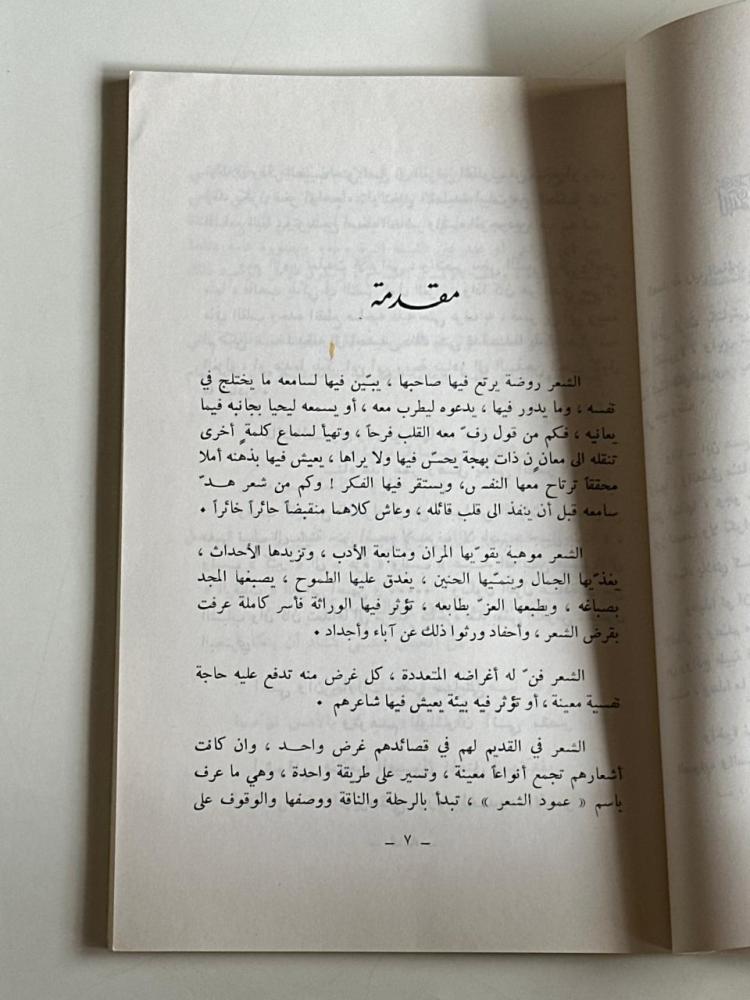 مقدمة
الشعر روضة يرتع فيها صاحبها ، يبّين فيها لسامعه ما يختلج في
نفسه ، وما يدور فيها ، يدعوه ليطرب معه ، أو يسمعه ليحيا بجانبه فيما
يعانيه ، فكم من قول رفّ معه القلب فرحاً ، وتهيأ لسماع كلمةٍ أخرى
تنقله الى معانٍ ذات بهجة يحسّ فيها ولا يراها ، يعيش فيها بذهنه أملا
محققاً ترتاح معها النفس ، ويستقر فيها الفكر ! وكم من شعر هدّ
سامعه قبل أن ينفذ الى قلب قائله ، وعاش كلاهما منقبضاً حائراً خائراً .
الشعر موهبة يقوّيها المران ومتابعة الأدب ، وتزيدها الأحداث ،
يغذّيها الجمال وينمّيها الحنين ، يغدق عليها الطموح ، يصبغها المجد
بصباغه ، ويطبعها العزّ بطابعه ، تؤثر فيها الوراثة فأسر كاملة عرفت
بقرض الشعر ، وأحفاد ورثوا ذلك عن آباء وأجداد .
الشعر فنّ له أغراضه المتعددة ، كل غرض منه تدفع عليه حاجة
نفسية معينة ، أو تؤثر فيه بيئة يعيش فيها شاعرهم .
الشعر في القديم لهم في قصائدهم غرض واحد ، وان كانت
أشعارهم تجمع أنواعاً معينة ، وتسير على طريقة واحدة ، وهي ما عرف
باسم « عمود الشعر » ، تبدأ بالرحلة والناقة ووصفها والوقوف على
– ٧ –